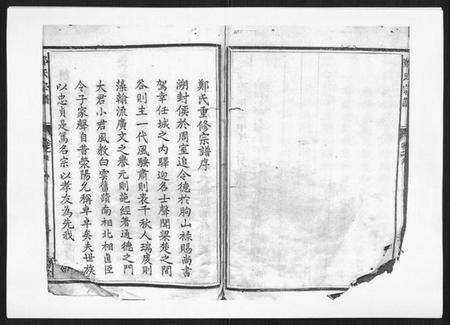 鄭氏重修宗譜序
溯封侯於周室追令德於朐山祿賜尚書
駕幸任城之內驛迎名士聲聞梁楚之間
谷則主一代風騷肅則表千秋人瑞度則
藻翰流廣文之譽元則詭經著通德之門
大君小君風教白雲舊蹟南相北相直臣
令子家聲自昔滎陽允稱卓卓矣夫世族
以忠貞是篤名宗以孝友為先我